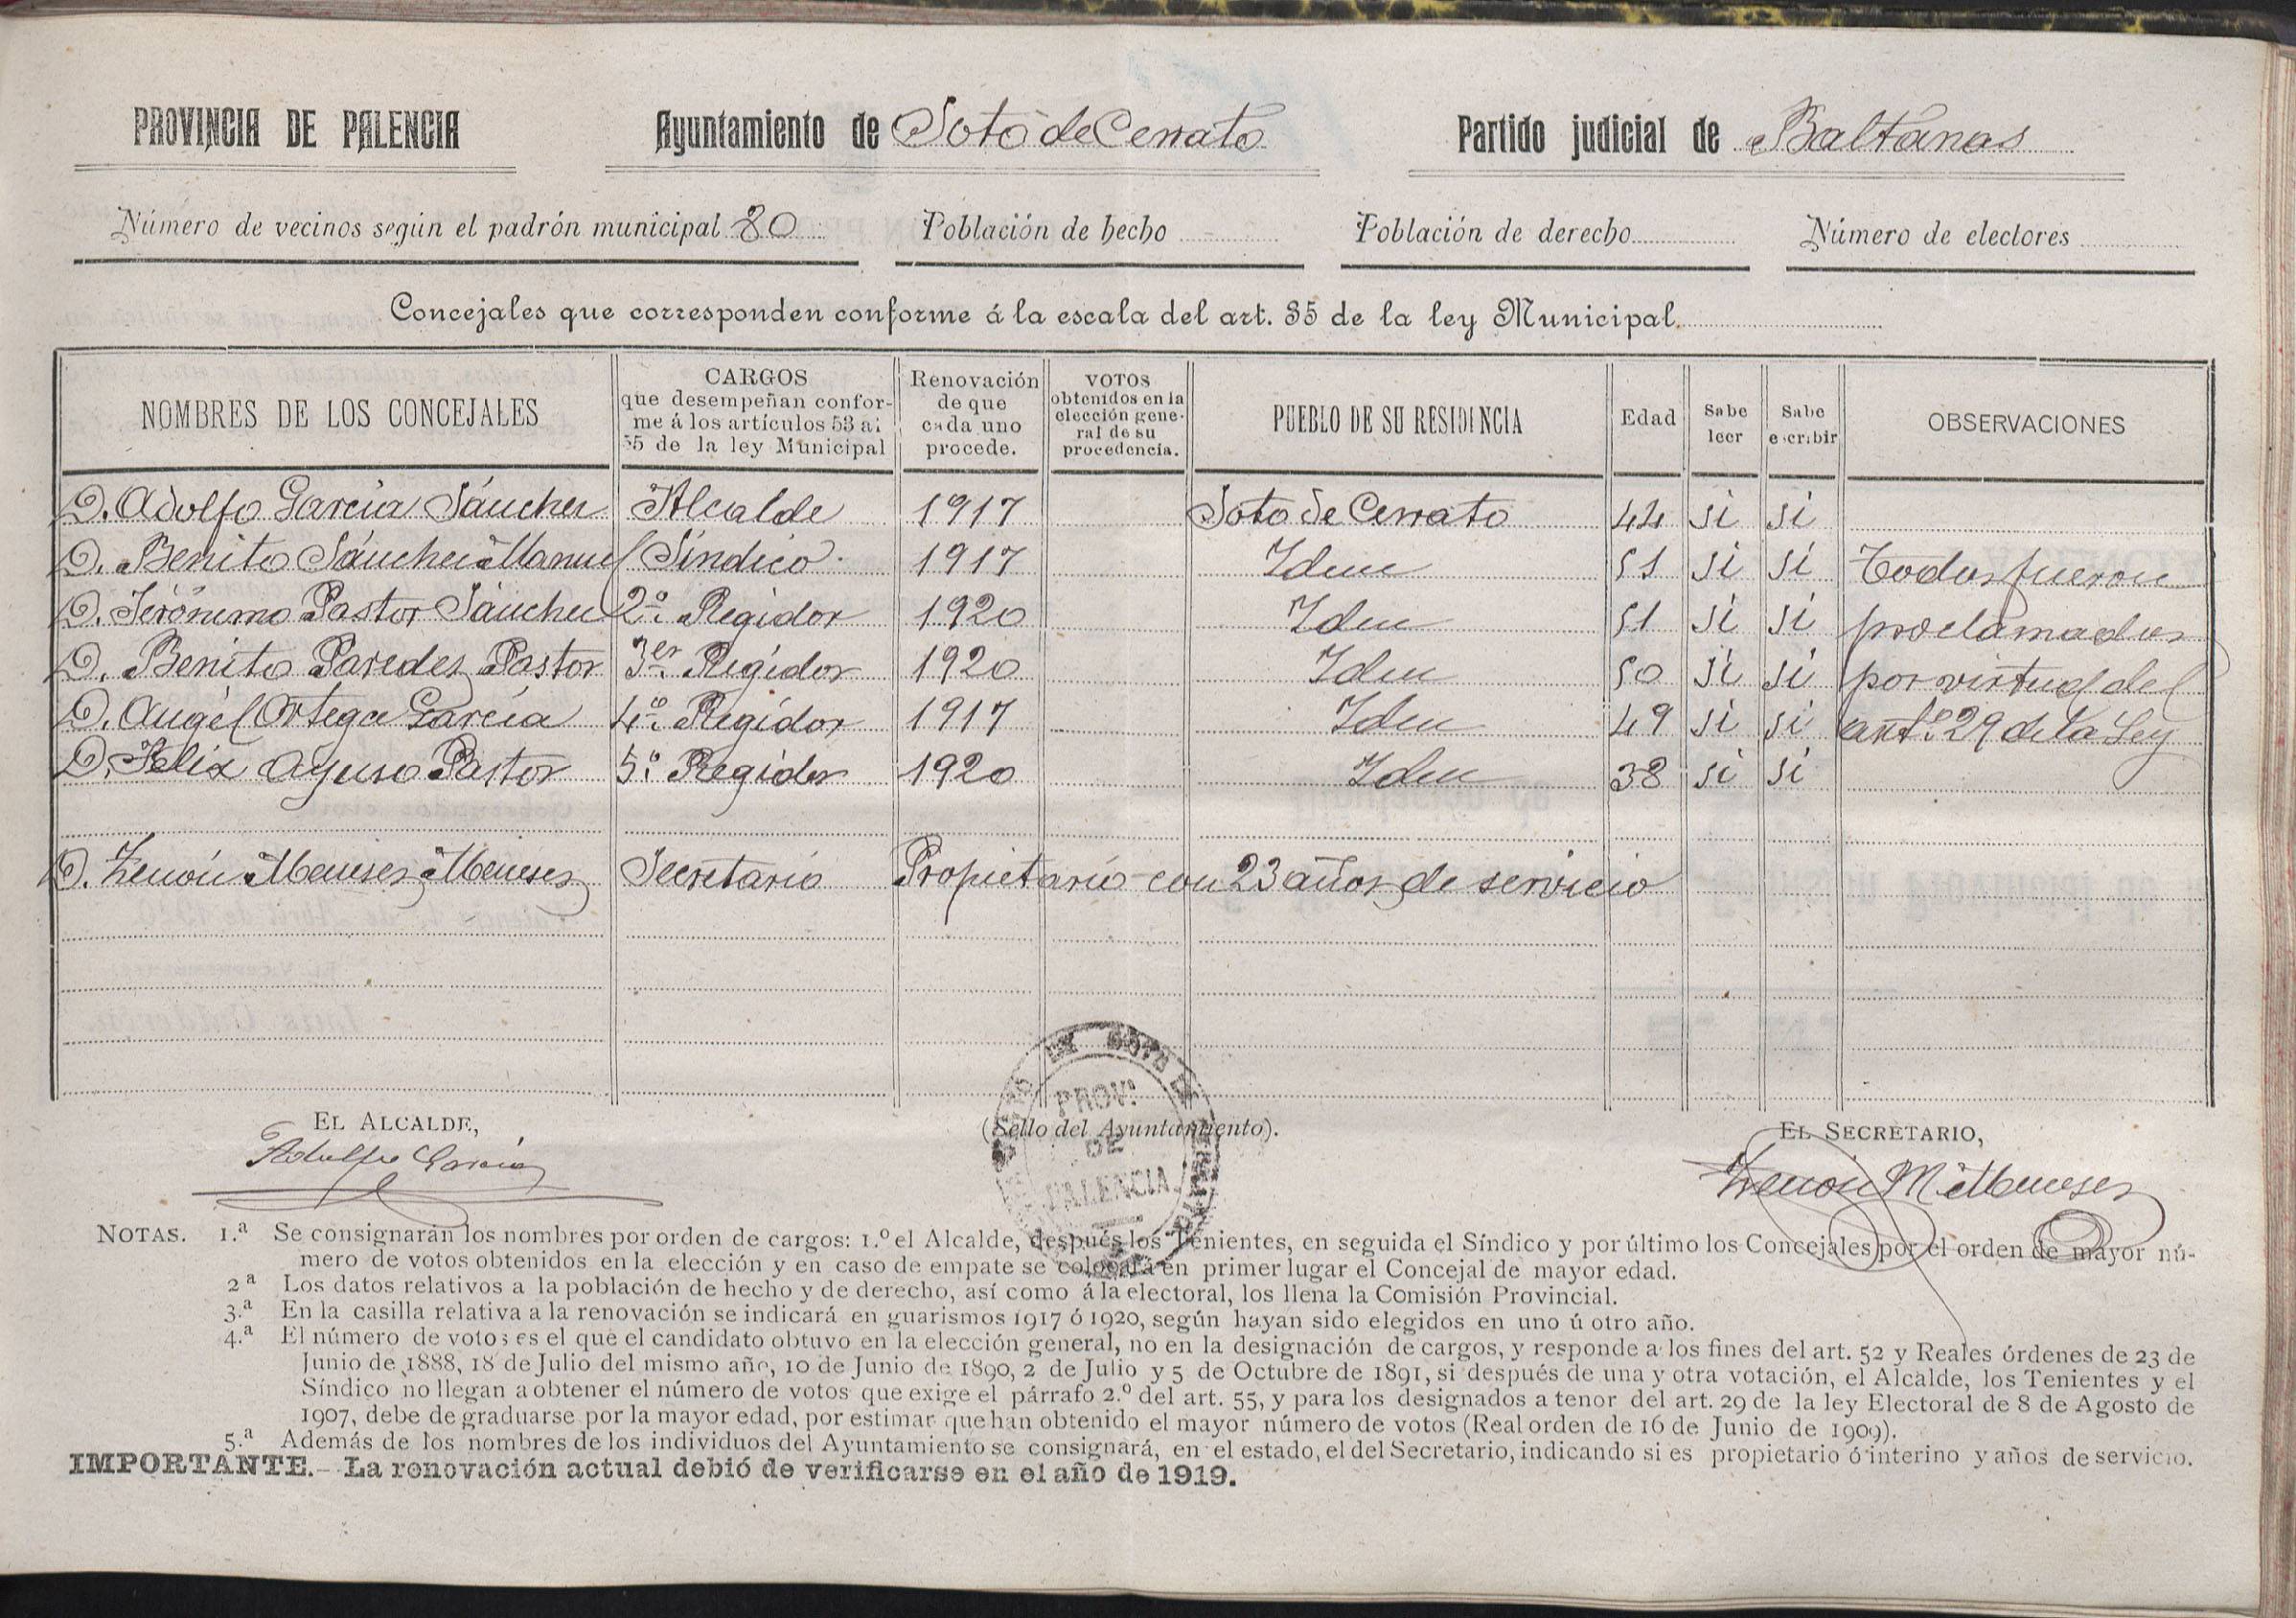 PROVINCIA DE PALENCIA Ayuntamiento de Soto de Cerrato Partido judicial de Baltanas
Número de vecinos según el padrón municipal 80 Población de hecho Población de derecho Número de electores
Concejales que corresponden conforme á la escala del art. 35 de la ley Municipal
NOMBRES DE LOS CONCEJALES CARGOS que desempeñan confor- me á los artículos 53 al 55 de la ley Municipal Renovación de que cada uno procede. VOTOS obtenidos en la elección gene- ral de su procedencia. PUEBLO DE SU RESIDENCIA Edad Sabe leer Sabe escribir OBSERVACIONES
D. Adolfo García Sánchez Alcalde 1917 Soto de Cerrato 44 si si
D. Benito Sánchez Manuel Síndico 1917 Idem 51 si si Todos fueron
D. Jerónimo Pastor Sánchez 2º Regidor 1920 Idem 51 si si proclamados
D. Benito Paredes Pastor 3er Regidor 1920 Idem 50 si si por virtud del
D. Angel Ortega García 4º Regidor 1917 Idem 49 si si artº 29 de la Ley
D. Felix Ayuso Pastor 5º Regidor 1920 Idem 38 si si
D. Zenón Meneses Meneses Secretario Propietario con 23 años de servicio
EL ALCALDE, (Sello del Ayuntamiento). EL SECRETARIO,
PROVª DE PALENCIA
Adolfo García Zenón M Meneses
NOTAS. 1.ª Se consignarán los nombres por orden de cargos: 1.º el Alcalde, después los Tenientes, en seguida el Síndico y por último los Concejales por el orden de mayor nú-
mero de votos obtenidos en la elección y en caso de empate se colocará en primer lugar el Concejal de mayor edad.
2ª Los datos relativos a la población de hecho y de derecho, así como á la electoral, los llena la Comisión Provincial.
3.ª En la casilla relativa a la renovación se indicará en guarismos 1917 ó 1920, según hayan sido elegidos en uno ú otro año.
4.ª El número de votos es el que el candidato obtuvo en la elección general, no en la designación de cargos, y responde a los fines del art. 52 y Reales órdenes de 23 de
Junio de 1888, 18 de Julio del mismo año, 10 de Junio de 1890, 2 de Julio y 5 de Octubre de 1891, si después de una y otra votación, el Alcalde, los Tenientes y el
Síndico no llegan a obtener el número de votos que exige el párrafo 2.º del art. 55, y para los designados a tenor del art. 29 de la ley Electoral de 8 de Agosto de
1907, debe de graduarse por la mayor edad, por estimar que han obtenido el mayor número de votos (Real orden de 16 de Junio de 1909).
5.ª Además de los nombres de los individuos del Ayuntamiento se consignará, en el estado, el del Secretario, indicando si es propietario ó interino y años de servicio.
IMPORTANTE.- La renovación actual debió de verificarse en el año de 1919.